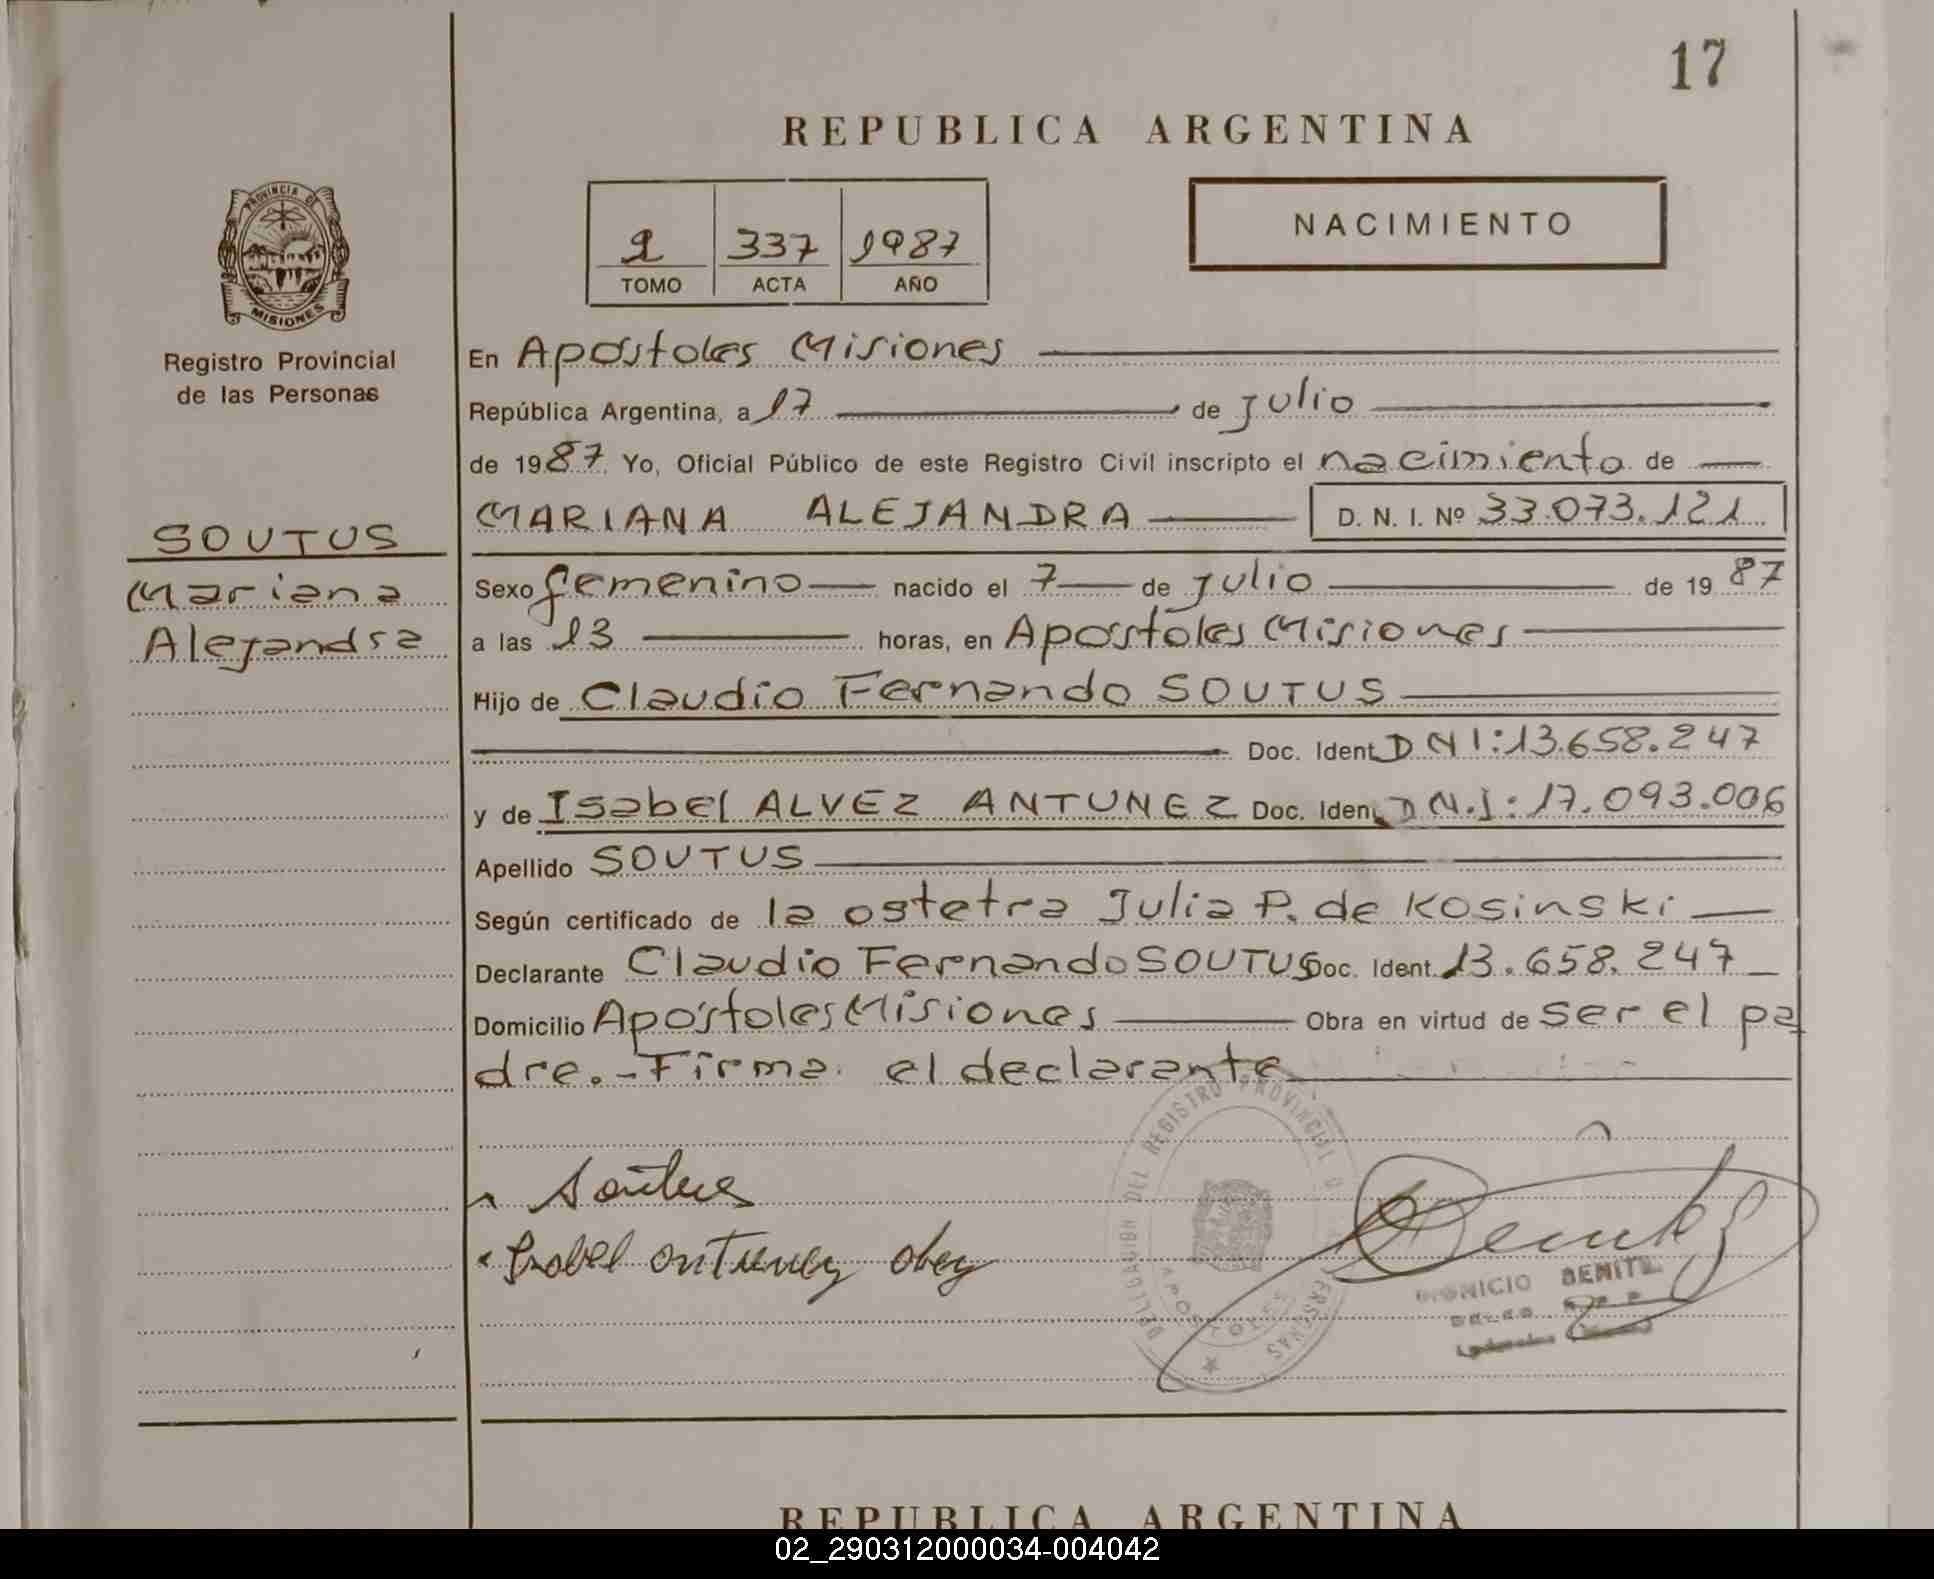 17
REPUBLICA ARGENTINA
PROVINCIA DE
MISIONES
Registro Provincial
de las Personas
2 337 1987
TOMO ACTA AÑO
NACIMIENTO
En Apóstoles Misiones
República Argentina, a 17 de julio
de 1987. Yo, Oficial Público de este Registro Civil inscripto el nacimiento de
MARIANA ALEJANDRA D. N. I. Nº 33.073.121
SOUTUS
Mariana
Alejandra
Sexo femenino nacido el 7 de julio de 1987
a las 13 horas, en Apóstoles Misiones
Hijo de Claudio Fernando SOUTUS
Doc. Ident. DNI: 13.658.247
y de Isabel ALVEZ ANTUNEZ Doc. Iden. D.N.I: 17.093.006
Apellido SOUTUS
Según certificado de la ostetra Julia P. de Kosinski
Declarante Claudio Fernando SOUTUS Doc. Ident. 13.658.247
Domicilio Apóstoles Misiones Obra en virtud de ser el pa
dre.- Firma el declarante
DELEGACION DEL REGISTRO PROVINCIAL DE PERSONAS
APOSTOLES
Soutus
Isabel antunez
DIONICIO BENITEZ
REPUBLICA ARGENTINA
02_290312000034-004042